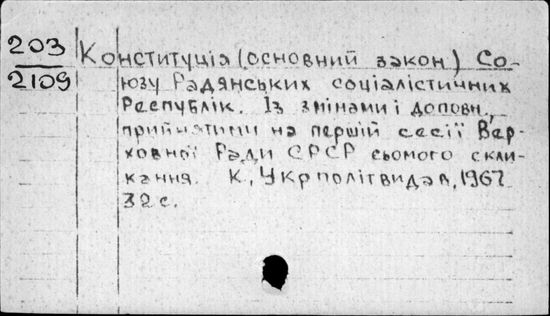 203
2109
Конституція (основний закон) Со-
юзу Радянських соціалістичних
Республік. Із змінами і доповн.,
прийнятими на першій сесії Вер-
ховної Ради СРСР сьомого скли-
кання. К., Укрполітвидав, 1967
32 с.